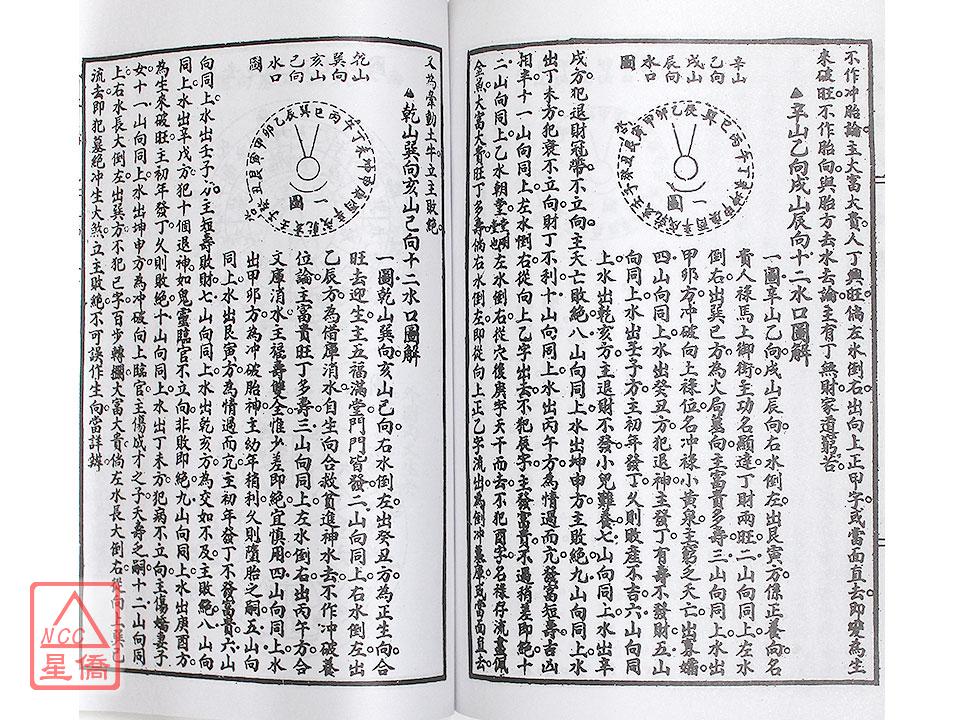 不作冲胎論主大富大貴人丁興旺倘左水倒右出向上正甲字或當面直去即變為生
來破旺不作胎向與胎方去水去論主有丁無財家道窮苦
▲辛山乙向戌山辰向十二水口圖解
辛山
乙向
戌山
辰向
水口
圖
一圖
一圖辛山乙向戌山辰向右水倒左出艮寅方係正養向名
貴人祿馬上御街主功名顯達丁財兩旺二山向同上左水
倒右出巽巳方為火局墓向主富貴多壽三山向同上水出
甲卯方冲破向上祿位名冲祿小黃泉主窮乏夭亡出寡孀
四山向同上水出癸丑方犯退神主發丁有壽不發財五山
向同上水出壬子方主初年發丁久則敗產不吉六山向同
上水出乾亥方主退財不發小兒難養七山向同上水出辛
戌方犯退財冠帶不立向主夭亡敗絕八山向同上水出坤申方主敗絕九山向同上水
出丁未方犯衰不立向財丁不利十山向同上水出丙午方為情過而亢發富短壽吉凶
相半十一山向同上左水倒右從向上乙字出去不犯辰字主發富貴不過稍差即絕十
二山向同上乙水朝堂左水倒右從穴後庚字天干而去不犯酉字右祿存流盡佩
金魚大富大貴旺丁多壽倘右水倒左即從向上正乙字流出為倒冲墓庫或當面直去
又為牽動土牛立主敗絕
▲乾山巽向亥山巳向十二水口圖解
乾山
巽向
亥山
巳向
水口
圖
一圖
一圖乾山巽向亥山巳向右水倒左出癸丑方為正生向合
旺去迎生主五福滿堂門門皆發二山向同上右水倒左出
乙辰方為借庫消水自生向合救貧進神水去不作冲破養
位論主富貴旺丁多壽三山向同上左水倒右出丙午方合
文庫消水王福壽雙全惟少差即絕宜慎用四山向同上水
出甲卯方為冲破胎神主幼年稍利久則墮胎乏嗣五山向
同上水出艮寅方為情過而亢主初年發丁不發富貴六山
向同上水出壬子方主短壽敗財七山向同上水出乾亥方為交如不及主敗絕八山向
同上水出辛戌方犯十個退神如鬼靈臨官不立向非敗即絕九山向同上水出庚酉方
為生來破旺主初年發丁久則敗絕十山向同上水出丁未方犯病不立向主傷嬌妻子
女十一山向同上水出坤申方為冲破向上臨官主傷成才之子夭壽乏嗣十二山向同
上右水長大倒左出巽方不犯巳字百步轉欄大富大貴倘左水長大倒右從向上巽巳
流去即犯墓絕冲生大煞立主敗絕不可誤作生向當詳辨
NCC
星僑